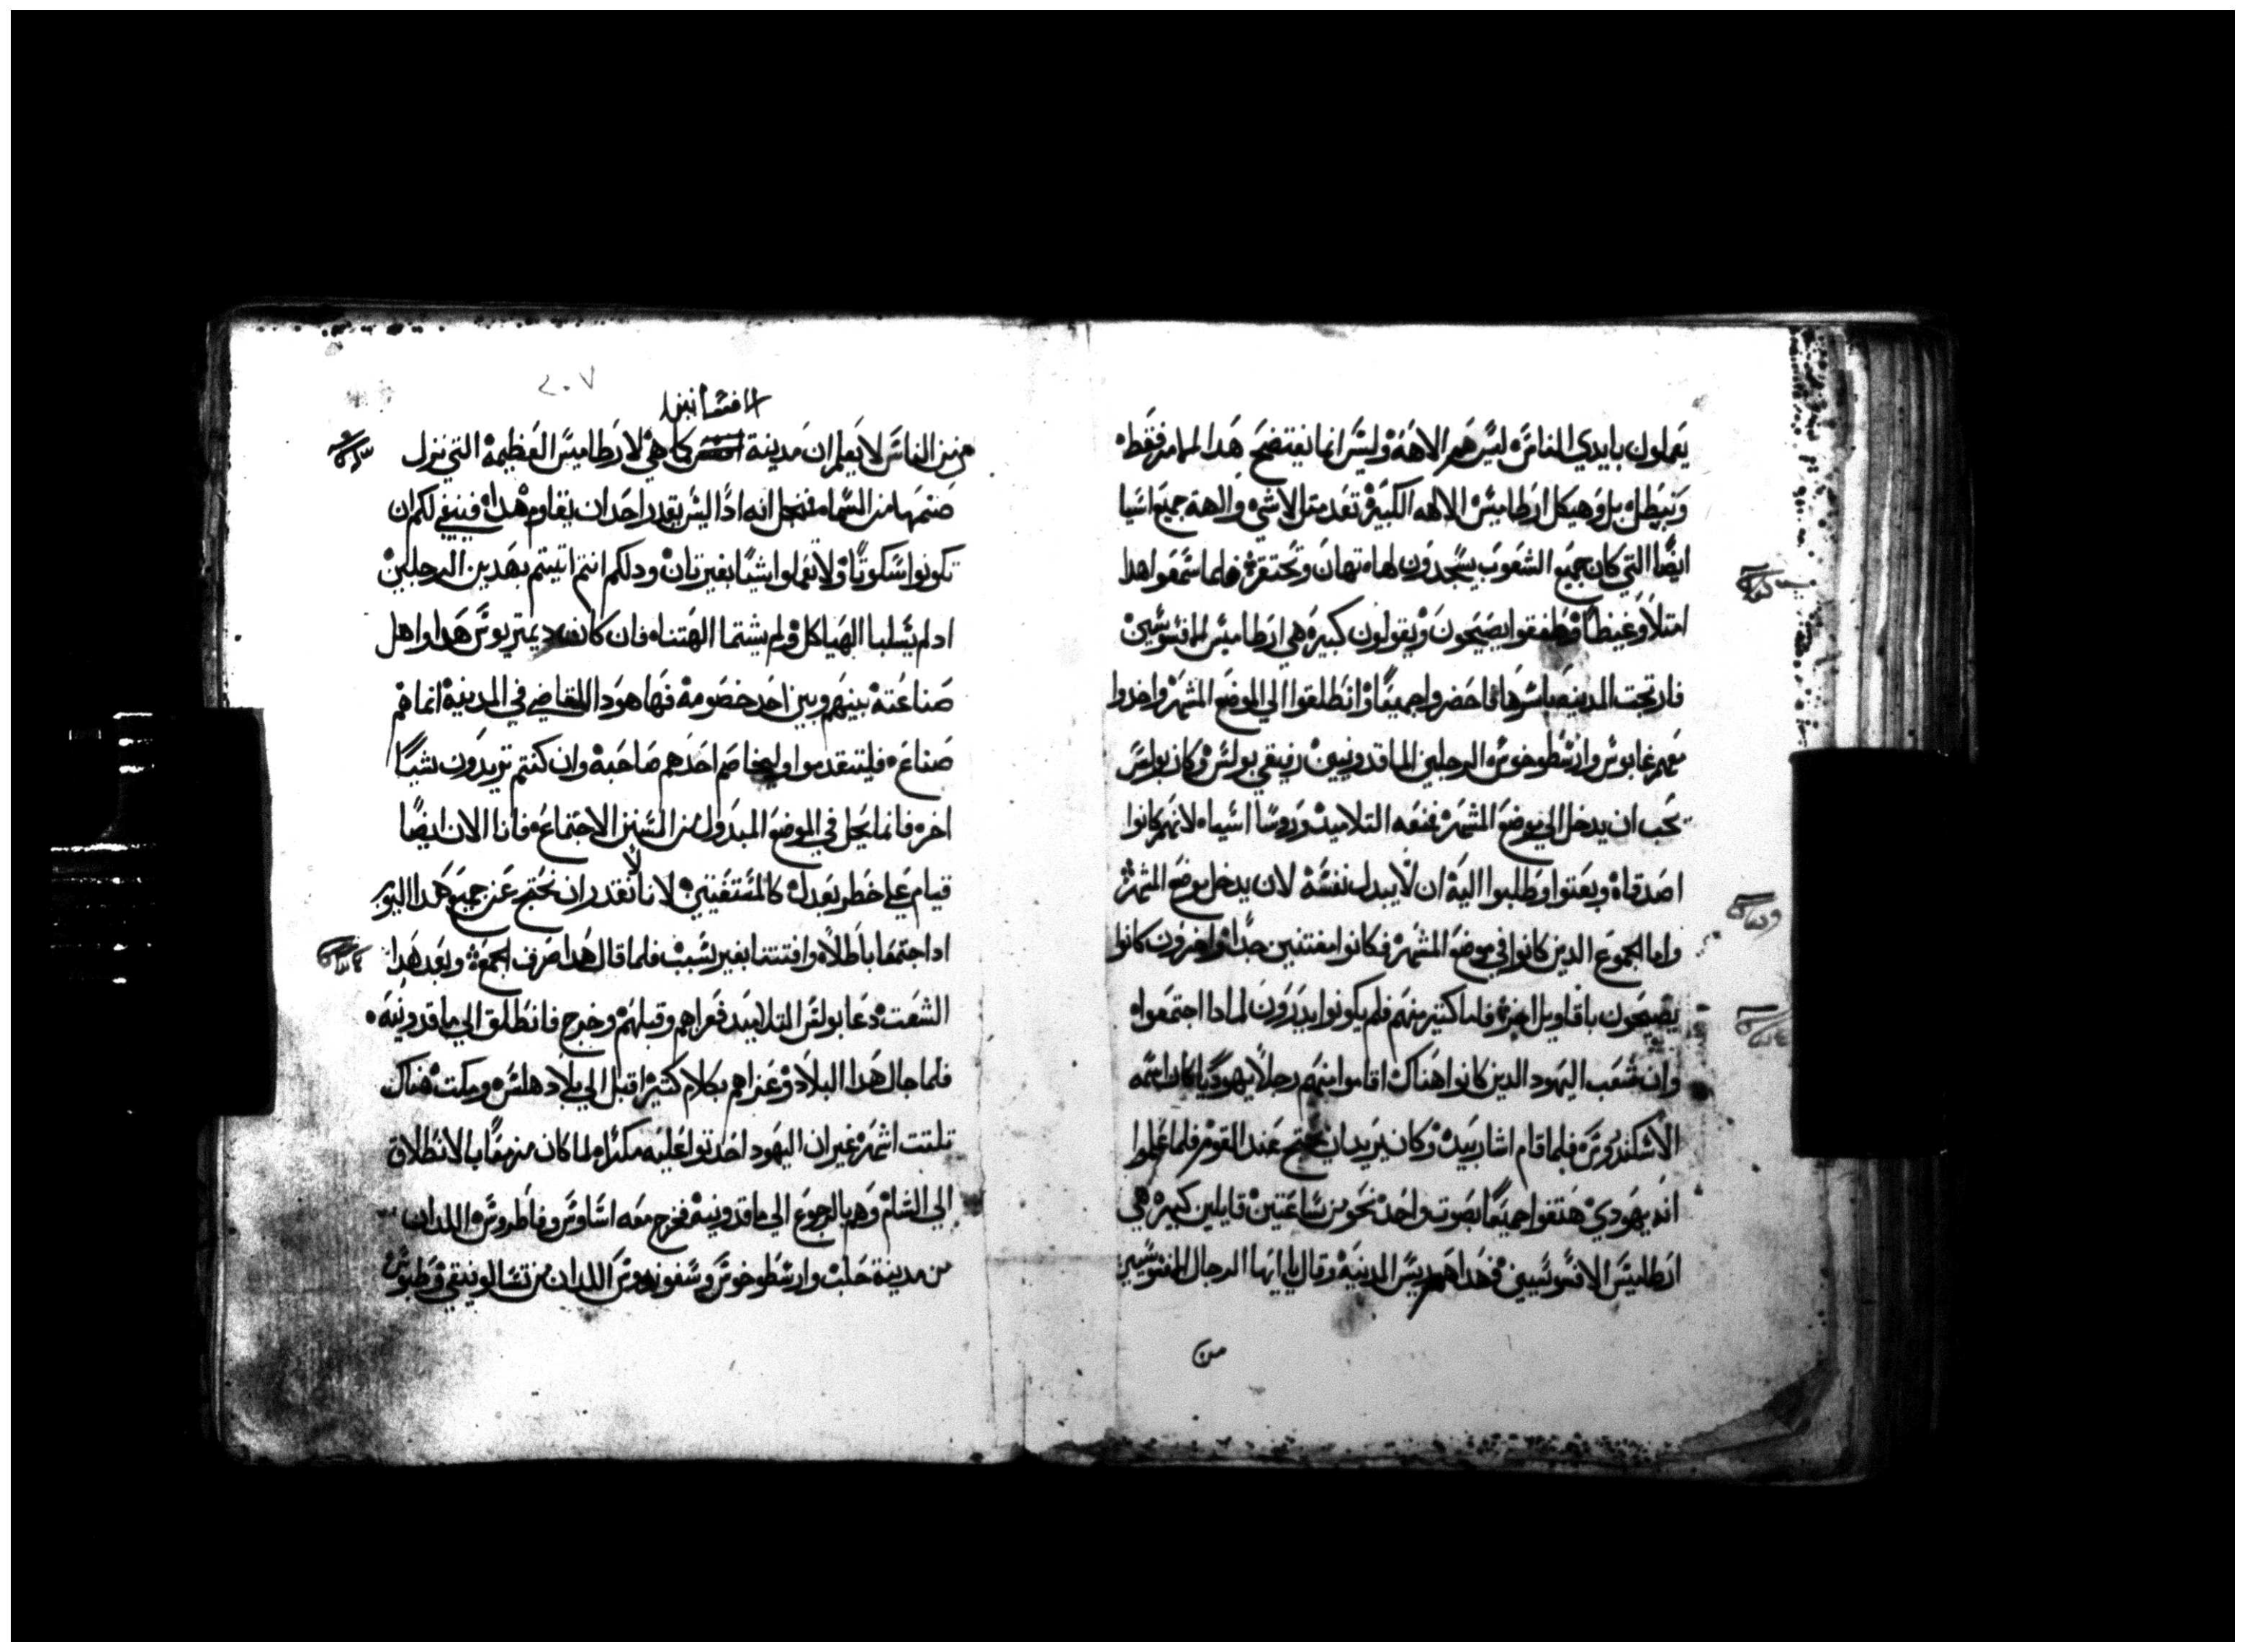 يعملون بايدي الناس ليس هم الاهة وليس انما يفتضح هدا الامر فقط
ويبطل بل وهيكل ارطاميس الالهه الكبيرة تعد متل لا شي والهة جميع اسيا
ايضا التي كان جميع الشعوب يسجدون لها تهان وتحتقر فلما سمعوا هدا
امتلاو غيظا وطفقوا يصيحون ويقولون كبيرة هي ارطاميس الافسوسيين
فارتجت المدينه باسرها فاحضروا جميعا وانطلقوا الي الموضع المشهر واخدوا
معهم غايوس وارسطوخوس الرجلين الماقدونيين رفيقي بولس وكان بولس
يحب ان يدخل الي موضع المشهر فمنعه التلاميد وروسا اسيا لانهم كانوا
اصدقاه وبعتوا وطلبوا اليه ان لا يبدل نفسه لان يدخل موضع المشهر
واما الجموع الدين كانوا في موضع المشهر فكانوا مفتنين جدا واخرون كانوا
يصيحون باقاويل اخر فلما كتير منهم فلم يكونوا يدرون لمادا اجتمعوا
وان شعب اليهود الدين كانوا هناك اقاموا منهم رجلا يهوديا كان اسمه
الاسكندروس فلما قام اشار بيده وكان يريد ان يحتج عند القوم فلما علموا
انه يهودي هتفوا جميعا بصوت واحد نحو من ساعتين قايلين كبيره هي
ارطاميس الافسوسيين فهداهم ريس المدينة وقال يا ايها الرجال الافسوسيين
من
٢٠٧
افسانيين
من من الناس لا يعلم ان مدينة كاهي لارطاميس العظيمه التي نزل
صنمها من السما فمن اجل انه ادا ليس يقدر احد ان يقاوم هدا فينبغي لكم ان
تكونوا سكوتا ولا تعملوا شيا بغير تان ودلكم انتم اتيتم بهدين الرجلين
اد لم يسلبا الهياكل ولم يشتما الهتنا فان كان ديميتريوس هدا واهل
صناعته بينهم وبين احد خصومة فها هودا القاضي في المدينة انما هم
صناع فليتقدموا وليخاصم احدهم صاحبه وان كنتم تريدون شيا
اخر فانما يحل في الموضع المبدول من السنن الاجتماعه فانا الان ايضا
قيام علي خطر بعد ان كالمستفتنين لانا لا نقدر ان نحتج عن جميع هدا اليوم
اد اجتمعنا باطلا وافتتنا بغير سبب فلما قال هدا صرف الجمع وبعد هدا
الشعت دعا بولس التلاميد فعزاهم وقبلهم وخرج فانطلق الي ماقدونية
فلما جال هدا البلاد وعزاهم بكلام كتير اقبل الي بلاد هلس ومكت هناك
تلتت اشهر غير ان اليهود احدتوا عليه مكرا لما كان مزمعا بالانطلاق
الي الشام وهم بالرجوع الي ماقدونية فخرج معه اساوس وفاطروس اللدان
من مدينة حلب وارسطوخوس وسفوندوس اللدان من تسالونيقي وطيوس